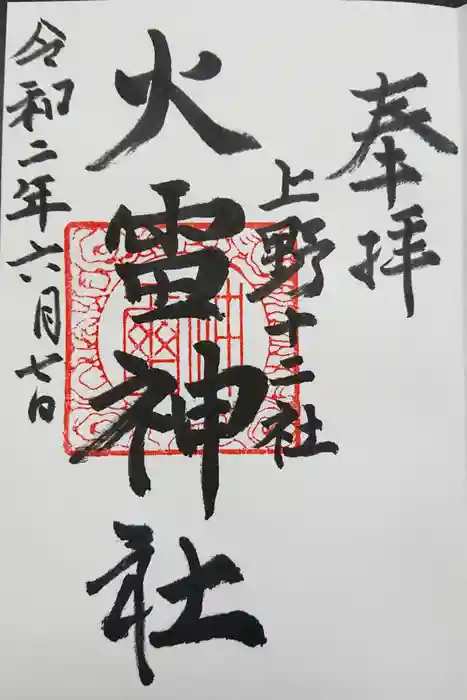 奉拝
上野十二社
火雷神社
令和二年六月七日